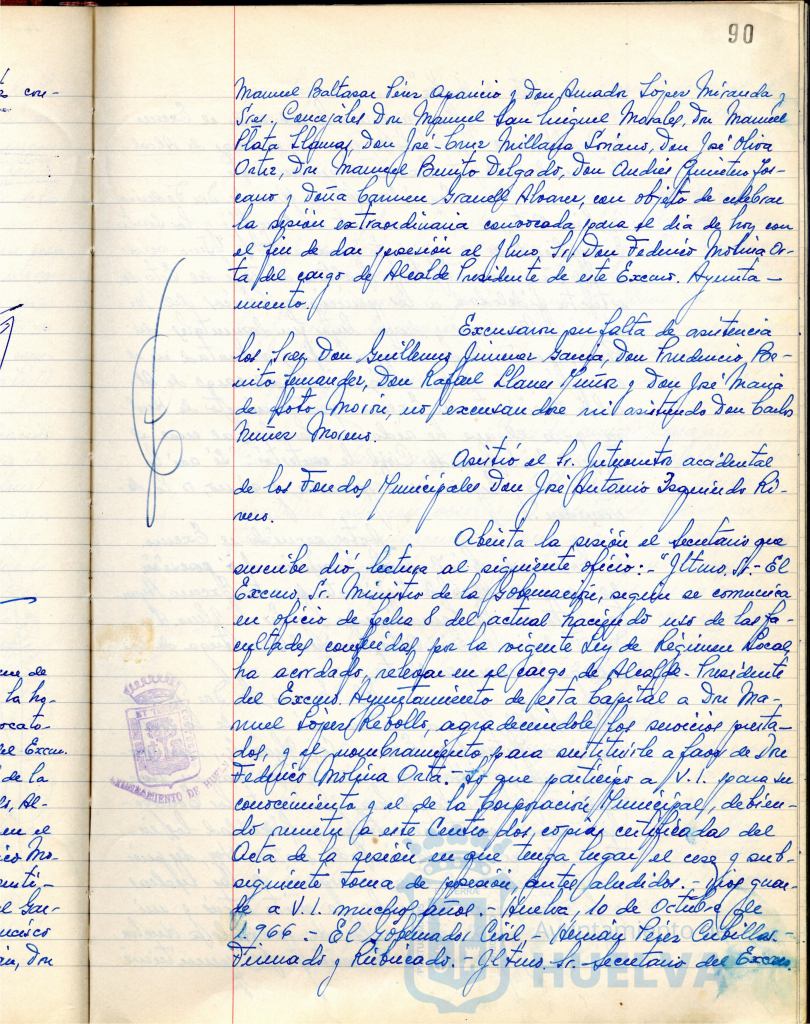 90
Manuel Baltasar Pérez Aparicio y Don Amador López Miranda y
Sres. Concejales Don Manuel San Miguel Morales, Don Manuel
Plata Llamas, Don José-Cruz Millana Soriano, Don José Oliva
Ortiz, Don Manuel Benito Delgado, Don Andrés Quintero Tos-
cano y Doña Carmen Granell Alvarez, con objeto de celebrar
la sesión extraordinaria convocada para el dia de hoy con
el fin de dar posesión al Iltmo. Sr. Don Federico Molina Or-
ta del cargo de Alcalde Presidente de este Excmo. Ayunta-
miento.
Excusaron su falta de asistencia
los Sres. Don Guillermo Jimenez García, Don Prudencio Be-
nito Fernandez, Don Rafael Llanes Muñoz y Don José Maria
de Soto Morón, no excusandose ni asistiendo Don Carlos
Núñez Moreno.
Asistió el Sr. Interventor accidental
de los Fondos Municipales Don José Antonio Izquierdo Ri-
vero.
Abierta la sesión el Secretario que
suscribe dió lectura al siguiente oficio:- "Iltmo. Sr.- El
Excmo. Sr. Ministro de la Gobernación, según se comunica
en oficio de fecha 8 del actual haciendo uso de las fa-
cultades conferidas por la vigente Ley de Régimen Local,
ha acordado relevar en el cargo de Alcalde-Presidente
del Excmo. Ayuntamiento de esta Capital a Don Ma-
nuel López Rebollo, agradeciendole los servicios presta-
dos, y el nombramiento para sustituirle a favor de Don
Federico Molina Orta.- Lo que participo a V.I. para su
conocimiento y el de la Corporación Municipal, debien-
do remitir a este Centro dos copias certificadas del
Acta de la sesión en que tenga lugar el cese y sub-
siguiente toma de posesión antes aludidos.- Dios guar-
de a V.I. muchos años.- Huelva, 10 de Octubre de
1.966.- El Gobernador Civil- Hernán Pérez Cubillas.-
Firmado y Rubricado.- Iltmo. Sr. Secretario del Excmo.
s con-
de
la ho-
el Excm.
de la
Al-
en el
co Mo-
Gar-
ncisco
Don
AYUNTAMIENTO DE HUELVA
Ayuntamiento
HUELVA